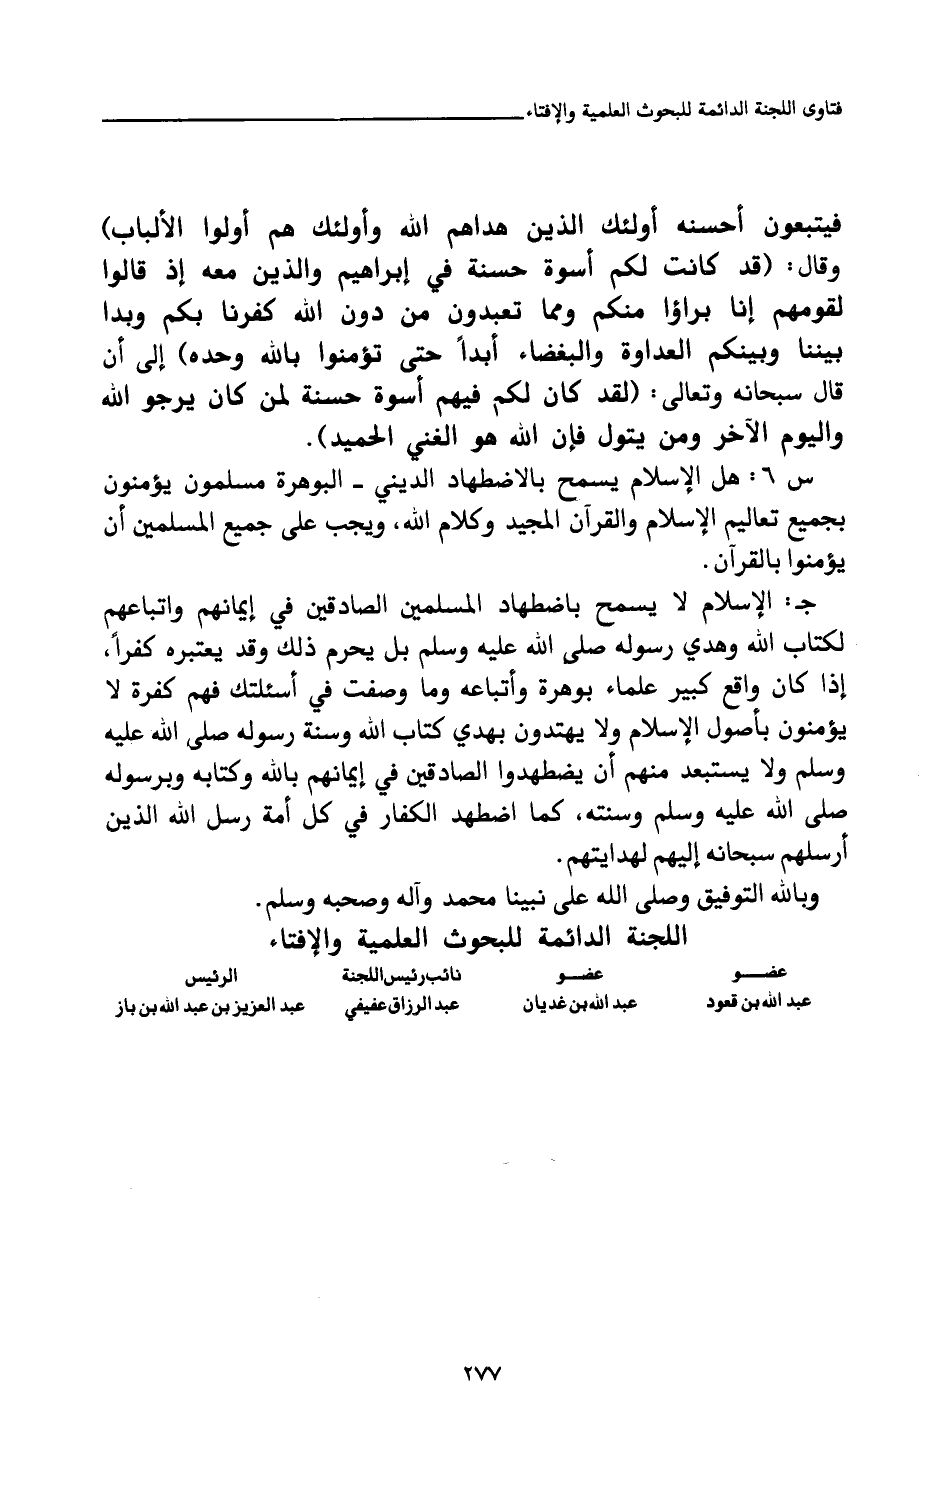 فتاوى اللجنة الدائمة للبحوث العلمية والإفتاء
فيتبعون أحسنه أولئك الذين هداهم الله وأولئك هم أولوا الألباب)
وقال: (قد كانت لكم أسوة حسنة في إبراهيم والذين معه إذ قالوا
لقومهم إنا برآؤا منكم ومما تعبدون من دون الله كفرنا بكم وبدا
بيننا وبينكم العداوة والبغضاء أبداً حتى تؤمنوا بالله وحده) إلى أن
قال سبحانه وتعالى: (لقد كان لكم فيهم أسوة حسنة لمن كان يرجو الله
واليوم الآخر ومن يتول فإن الله هو الغني الحميد).
س ٦: هل الإسلام يسمح بالاضطهاد الديني - البوهرة مسلمون يؤمنون
بجميع تعاليم الإسلام والقرآن المجيد وكلام الله، ويجب على جميع المسلمين أن
يؤمنوا بالقرآن.
جـ: الإسلام لا يسمح باضطهاد المسلمين الصادقين في إيمانهم واتباعهم
لكتاب الله وهدي رسوله صلى الله عليه وسلم بل يحرم ذلك وقد يعتبره كفراً،
إذا كان واقع كبير علماء بوهرة وأتباعه وما وصفت في أسئلتك فهم كفرة لا
يؤمنون بأصول الإسلام ولا يهتدون بهدي كتاب الله وسنة رسوله صلى الله عليه
وسلم ولا يستبعد منهم أن يضطهدوا الصادقين في إيمانهم بالله وكتابه وبرسوله
صلى الله عليه وسلم وسنته، كما اضطهد الكفار في كل أمة رسل الله الذين
أرسلهم سبحانه إليهم لهدايتهم.
وبالله التوفيق وصلى الله على نبينا محمد وآله وصحبه وسلم.
اللجنة الدائمة للبحوث العلمية والإفتاء
عضـــو عضـــو نائب رئيس اللجنة الرئيس
عبد الله بن قعود عبد الله بن غديان عبد الرزاق عفيفي عبد العزيز بن عبد الله بن باز
٢٧٧